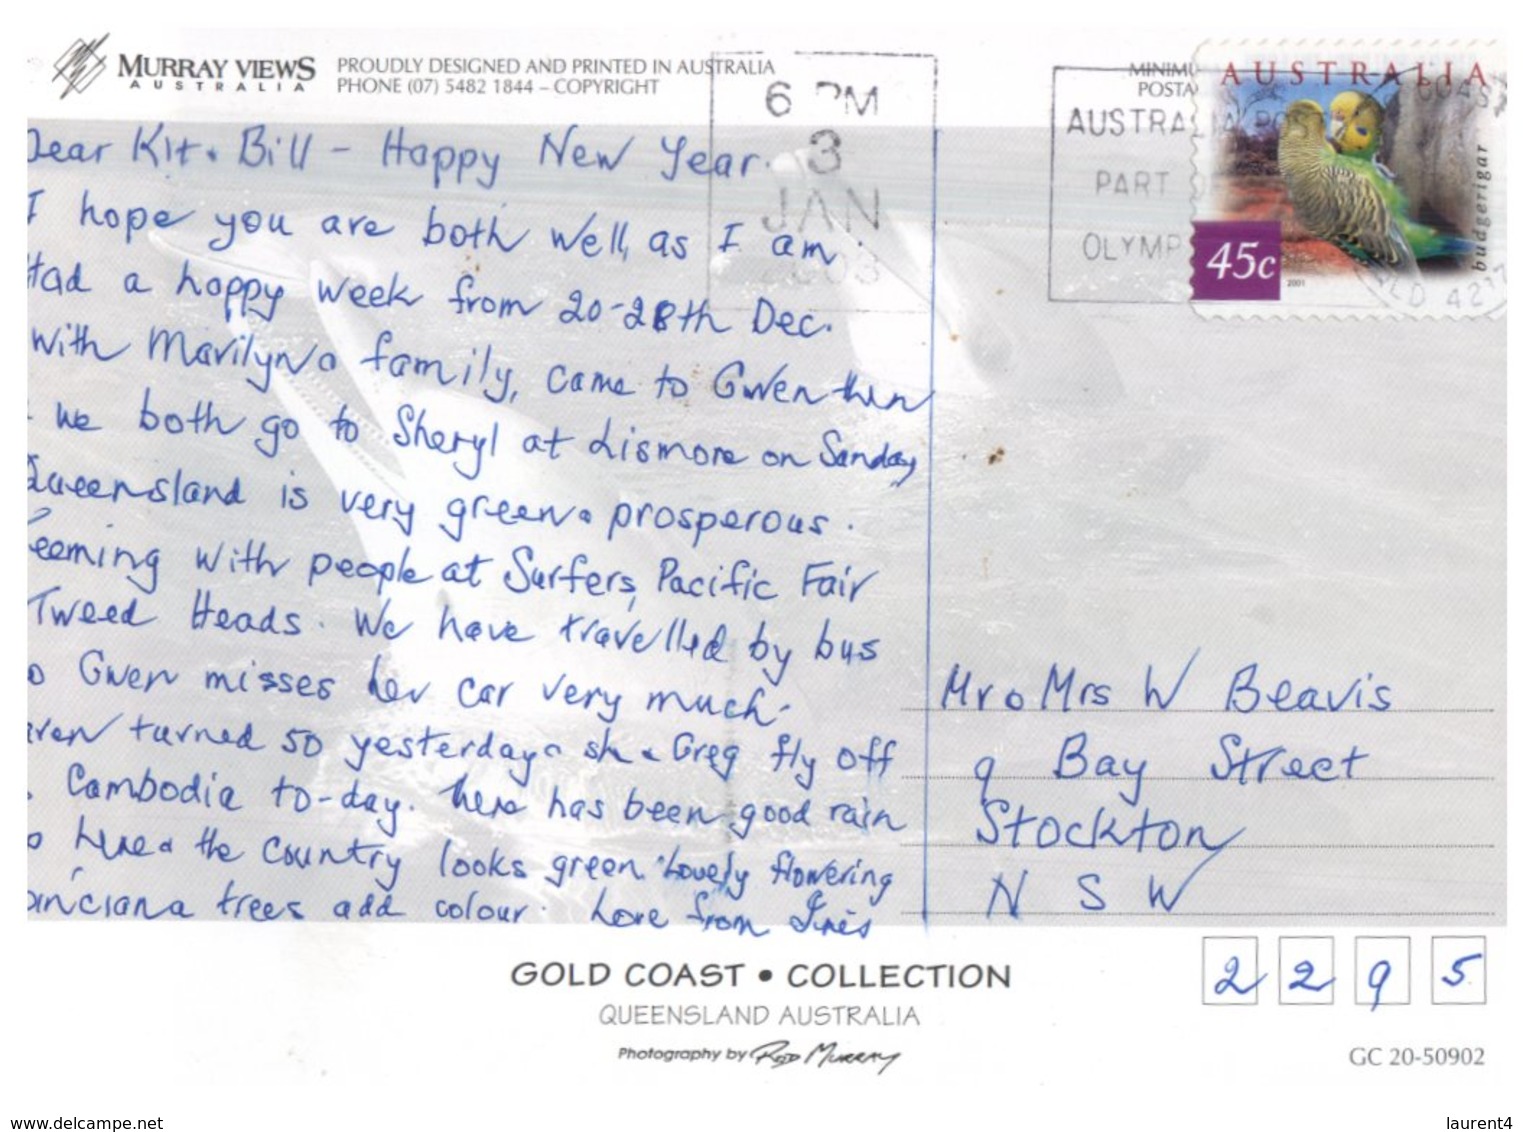 MURRAY VIEWS
AUSTRALIA
PROUDLY DESIGNED AND PRINTED IN AUSTRALIA
PHONE (07) 5482 1844 – COPYRIGHT
6 PM
3
JAN
2003
AUSTRALIA
PART
OLYMP
AUSTRALIA
budgerigar
45c
2001
QLD 4217
Dear Kit & Bill – Happy New Year.
I hope you are both well, as I am.
Had a happy week from 20-28th Dec.
with Marilyn & family, came to Gwen then
& we both go to Sheryl at Lismore on Sunday
Queensland is very green & prosperous.
Teeming with people at Surfers, Pacific Fair
Tweed Heads. We have travelled by bus
so Gwen misses her car very much.
turned 50 yesterday & she & Greg fly off
Cambodia to-day. There has been good rain
so here & the country looks green. Lovely flowering
poinciana trees add colour. Love from Inés
Mr & Mrs W Beavis
9 Bay Street
Stockton
N S W
2 2 9 5
GOLD COAST • COLLECTION
QUEENSLAND AUSTRALIA
Photography by Rod Murray
GC 20-50902
www.delcampe.net
laurent4